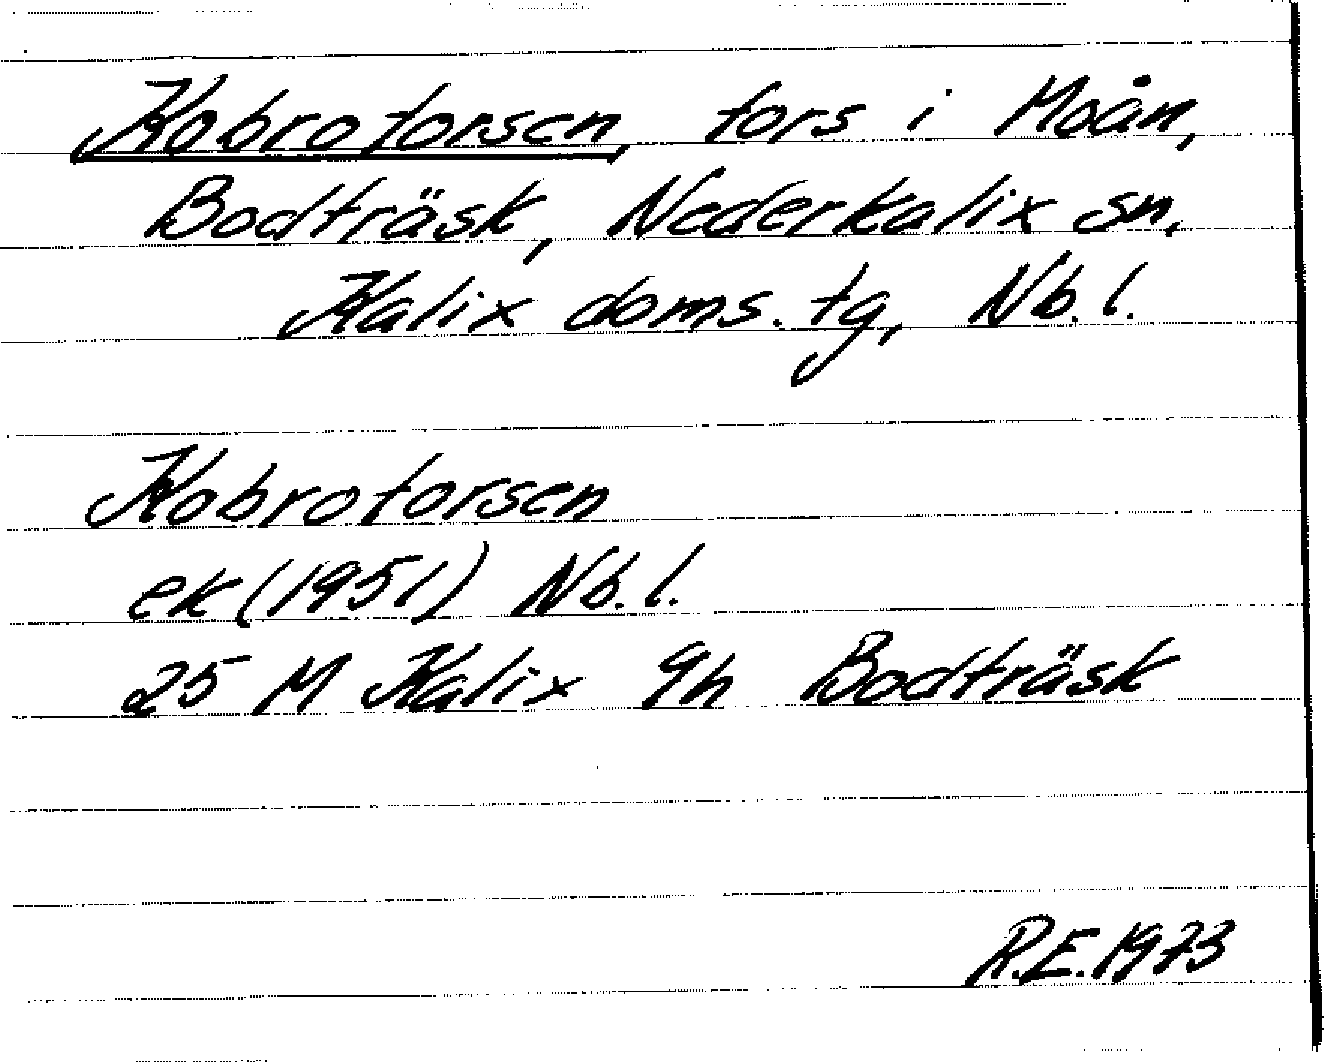 Kobroforsen, fors i Moån,
Bodträsk, Nederkalix sn,
Kalix doms. tg, Nb. l.
Kobroforsen
ek (1951) Nb. l.
25 M Kalix 9h Bodträsk
R.E. 1973